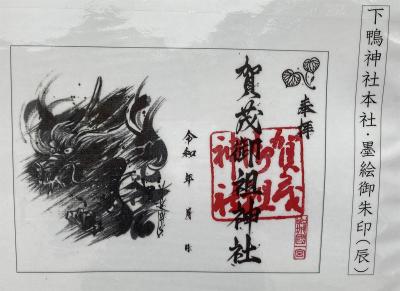 下鴨神社本社・墨絵御朱印(辰)
奉拝
賀茂御祖神社
賀茂
御祖
神社
令和 年 月 日